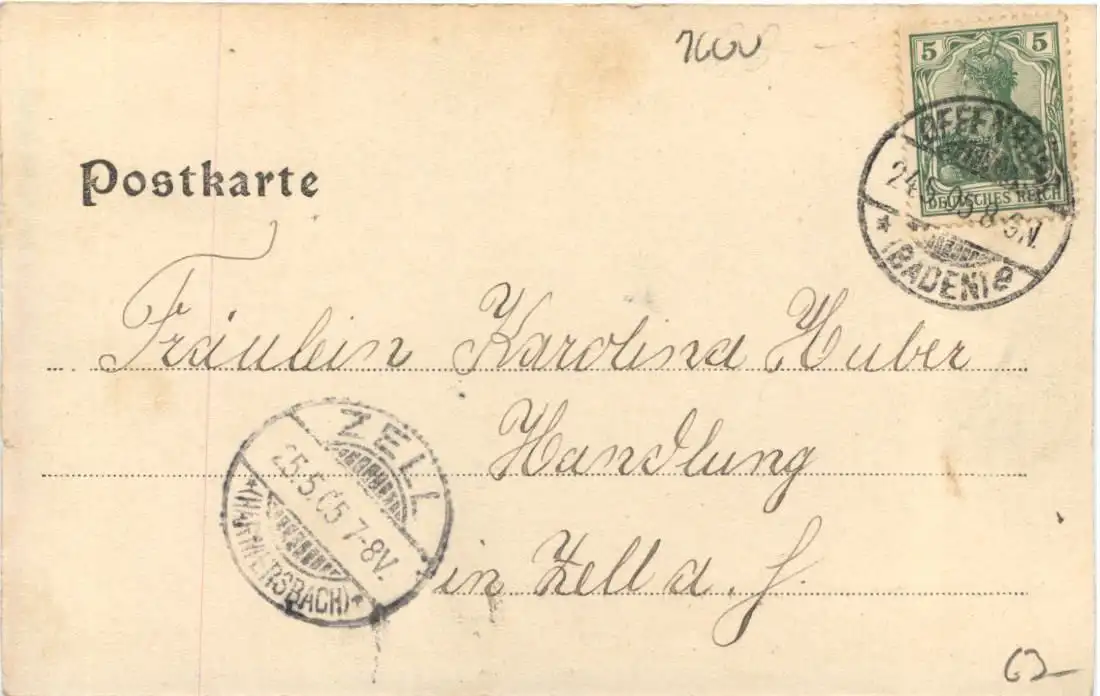 5 5
DEUTSCHES REICH
OFFENBURG
24.5.05.8-9N.
*(BADEN)e
Postkarte
Fräulein Karolina Huber
Handlung
in Zell a. H.
ZELL
25.5.05 7-8V.
*(HARMERSBACH)*